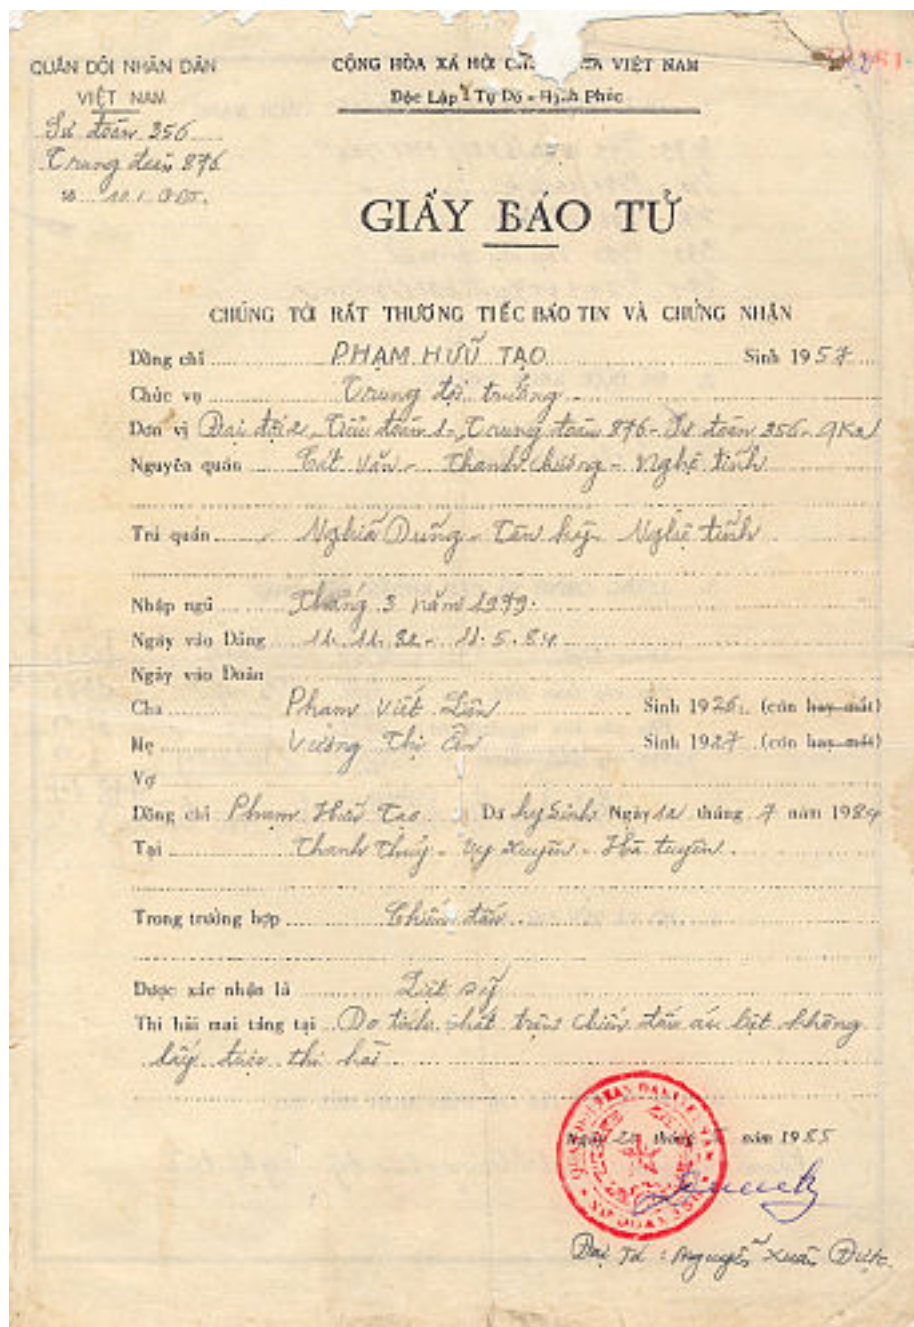 QUÂN ĐỘI NHÂN DÂN
VIỆT NAM
Sư đoàn 356
Trung đoàn 876
CỘNG HÒA XÃ HỘI VIỆT NAM
Độc Lập - Tự Do - Hạnh Phúc
GIẤY BÁO TỬ
CHÚNG TÔI RẤT THƯƠNG TIẾC BÁO TIN VÀ CHỨNG NHẬN
Đồng chí PHẠM HỮU TẠO Sinh 1957
Chức vụ Trung đội trưởng
Đơn vị Đại đội 2, Tiểu đoàn 1, Trung đoàn 876 - Sư đoàn 356 - QK2
Nguyên quán Cát Văn - Thanh Chương - Nghệ tĩnh
Trú quán Nghĩa Dũng - Tân kỳ - Nghệ tĩnh
Nhập ngũ Tháng 3 năm 1979.
Ngày vào Đảng 11.11.82 - 11.5.84
Ngày vào Đoàn
Cha Phạm Viết Sinh 1926. (còn hay mất)
Mẹ Vương Thị Sinh 1927 (còn hay mất)
Vợ
Đồng chí Phạm Hữu Tạo Đã hy sinh Ngày 12 tháng 7 năm 1984
Tại Thanh Thủy - Vị Xuyên - Hà tuyên.
Trong trường hợp Chiến đấu
Được xác nhận là Liệt sỹ
Thi hài mai táng tại Do tính chất trận chiến đấu ác liệt không
lấy được thi hài
Ngày tháng năm 1985
Đại Tá : Nguyễn Xuân